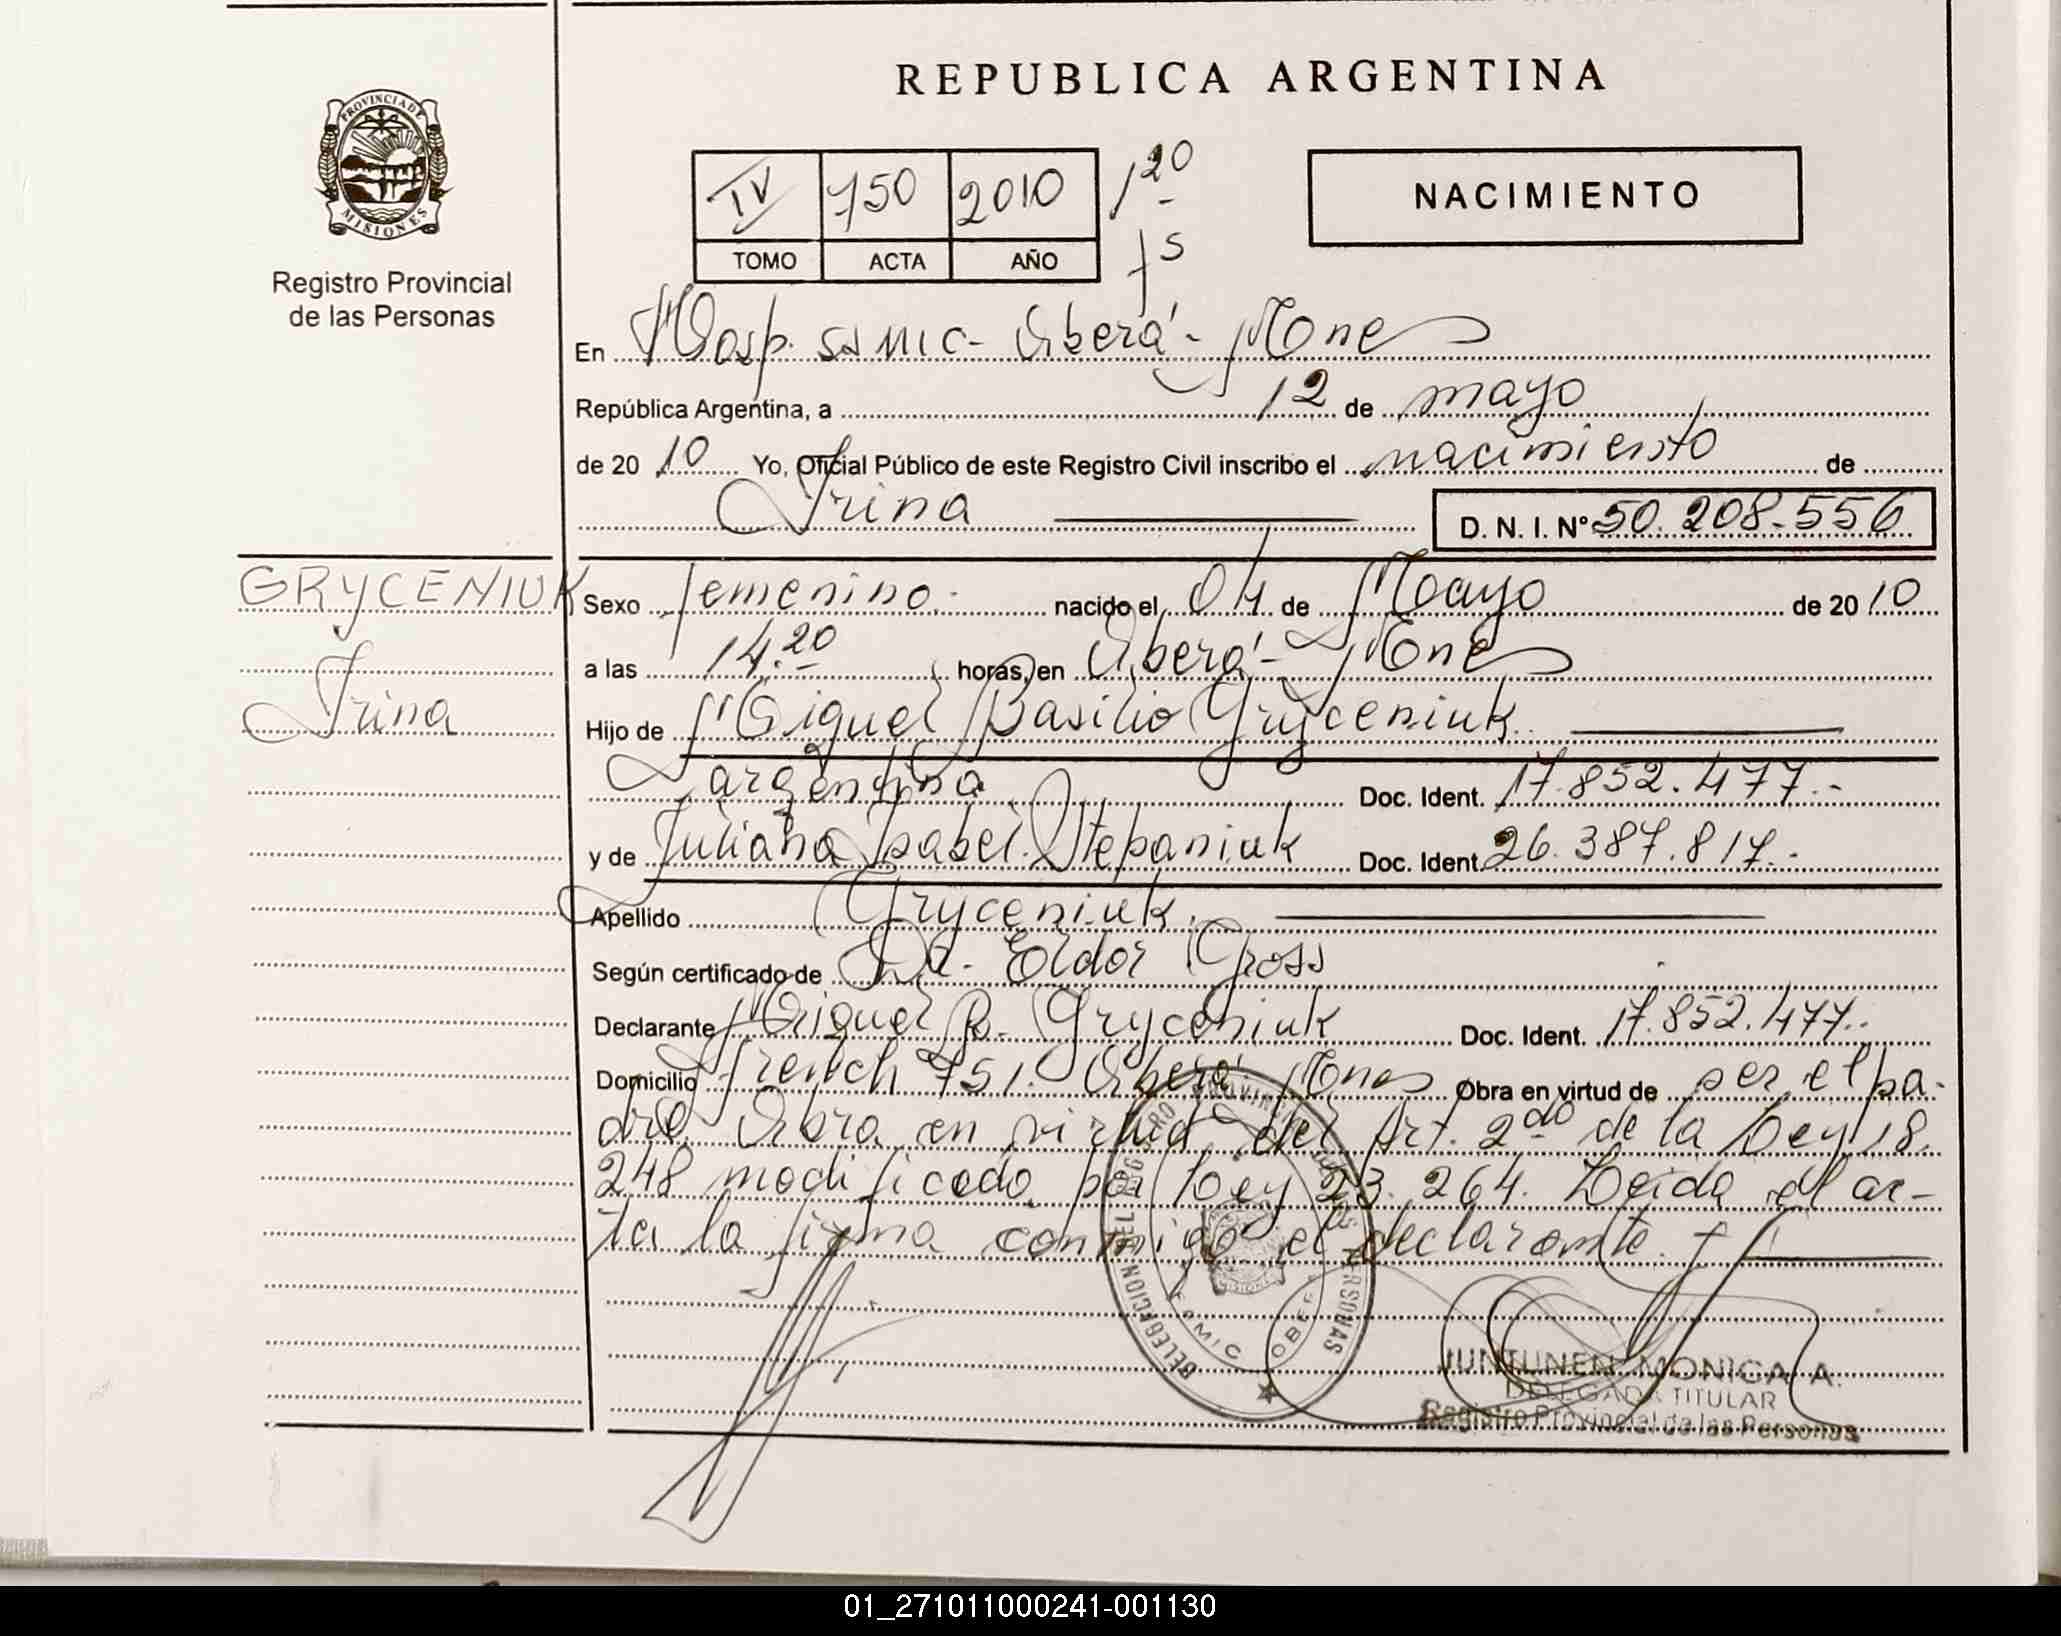 REPUBLICA ARGENTINA
PROVINCIA DE
MISIONES
Registro Provincial
de las Personas
IV 750 2010
TOMO ACTA AÑO
120
f5
NACIMIENTO
En Hosp. SAMIC - Oberá - Mones
República Argentina, a 12 de mayo
de 20 10 Yo, Oficial Público de este Registro Civil inscribo el nacimiento de
Irina D. N. I. Nº 50.208.556
GRYCENIUK
Irina
Sexo femenino. nacido el 04 de Mayo de 2010
a las 14.20 horas, en Oberá - Mones
Hijo de Miguel Basilio Gryceniuk
argentina Doc. Ident. 17.852.477.-
y de Juliana Isabel Stepaniuk Doc. Ident. 26.387.817.-
Apellido Gryceniuk.
Según certificado de Dr. Eldor Gross
Declarante Miguel B. Gryceniuk Doc. Ident. 17.852.477.-
Domicilio French 751. Oberá Mones Obra en virtud de ser el pa-
dre. Obra en virtud del Art. 2do de la Ley 18.
248 modificado por Ley 23.264. Leida el ac-
ta la firma conmigo el declarante.
DELEGACION DEL REGISTRO PROVINCIAL DE LAS PERSONAS
SAMIC OBERA
JUNTUNEN MONICA A.
DELEGADA TITULAR
Registro Provincial de las Personas
01_271011000241-001130